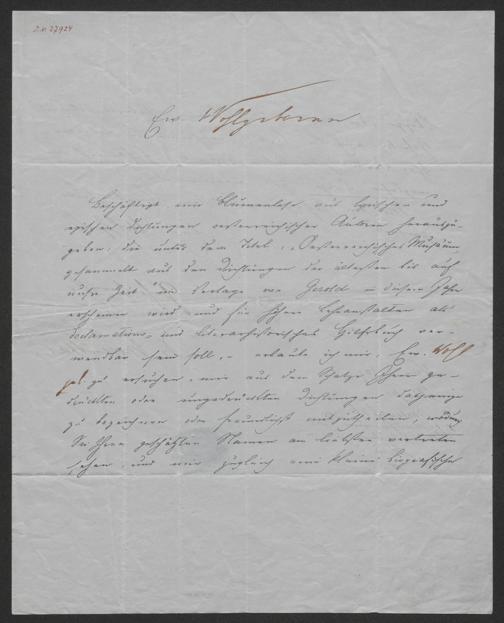 I.N. 27924
Ew. Wohlgeboren
Beschäftigt eine Blumenlese aus lyrischen und
epischen Dichtungen oesterreichischer Autoren herauszu-
geben, die unter dem Titel: "Oesterreichisches Museum
gesammelt aus den Dichtungen der ältesten bis auf
unsre Zeit" im Verlage von Gerold in diesem Jahre
erscheinen wird und für höhere Lehranstalten als
Declamations- und literarhistorisches Hilfsbuch ver-
wendbar sein soll, - erlaube ich mir, Ew. Wohl
geb. zu ersuchen, mir aus dem Schatze Ihrer ge-
druckten oder ungedruckten Dichtungen dasjenige
zu bezeichnen oder freundlichst mitzutheilen, wodurch
Sie Ihren geschätzten Namen am liebsten vertreten
sehen, und mir zugleich eine kleine biografische